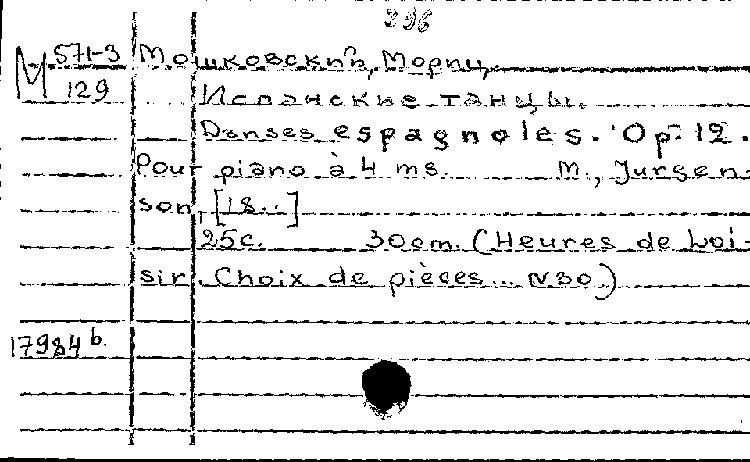 296
М 571-3 Мошковский, Мориц.
129 Испанские танцы.
Danses espagnoles. Op. 12.
Pour piano à 4 ms. M., Jurgen-
son, [18..]
25с. 30см. (Heures de Loi-
sir. Choix de pièces... N30)
17984 b.